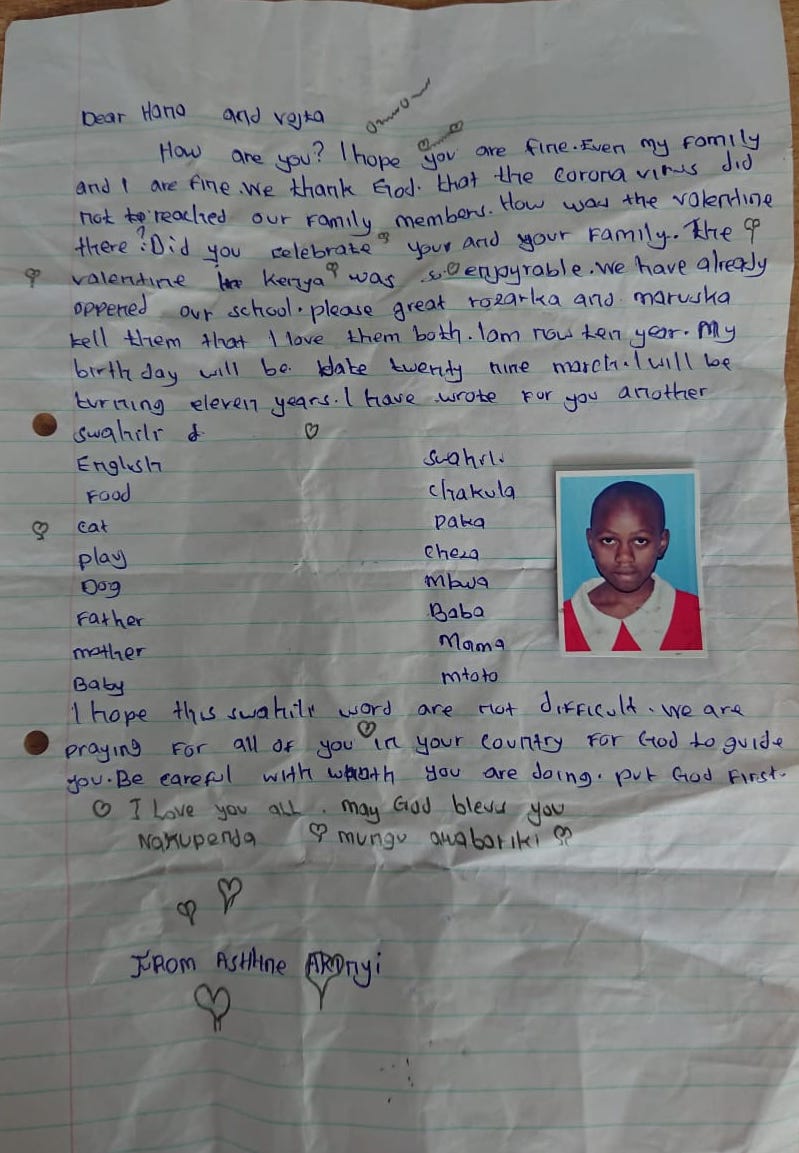 Dear Hana and vojta
How are you? I hope you are fine. Even my family
and I are fine. we thank God. that the corona virus did
not to reached our family members. How was the valentine
there? Did you celebrate your and your family. The
valentine Kenya was enjoyrable. we have already
oppened our school. please great rozarka and maruska
tell them that I love them both. Iam now ten year. My
birth day will be date twenty nine march. I will be
turning eleven years. I have wrote for you another
swahili &
English swahili
Food chakula
cat paka
play cheza
Dog Mbwa
Father Baba
mother Mama
Baby mtoto
I hope this swahili word are not difficult. we are
praying for all of you in your country for God to guide
you. Be careful with you are doing. put God first.
I Love you all. may God bless you
Nakupenda mungu awabariki
FROM